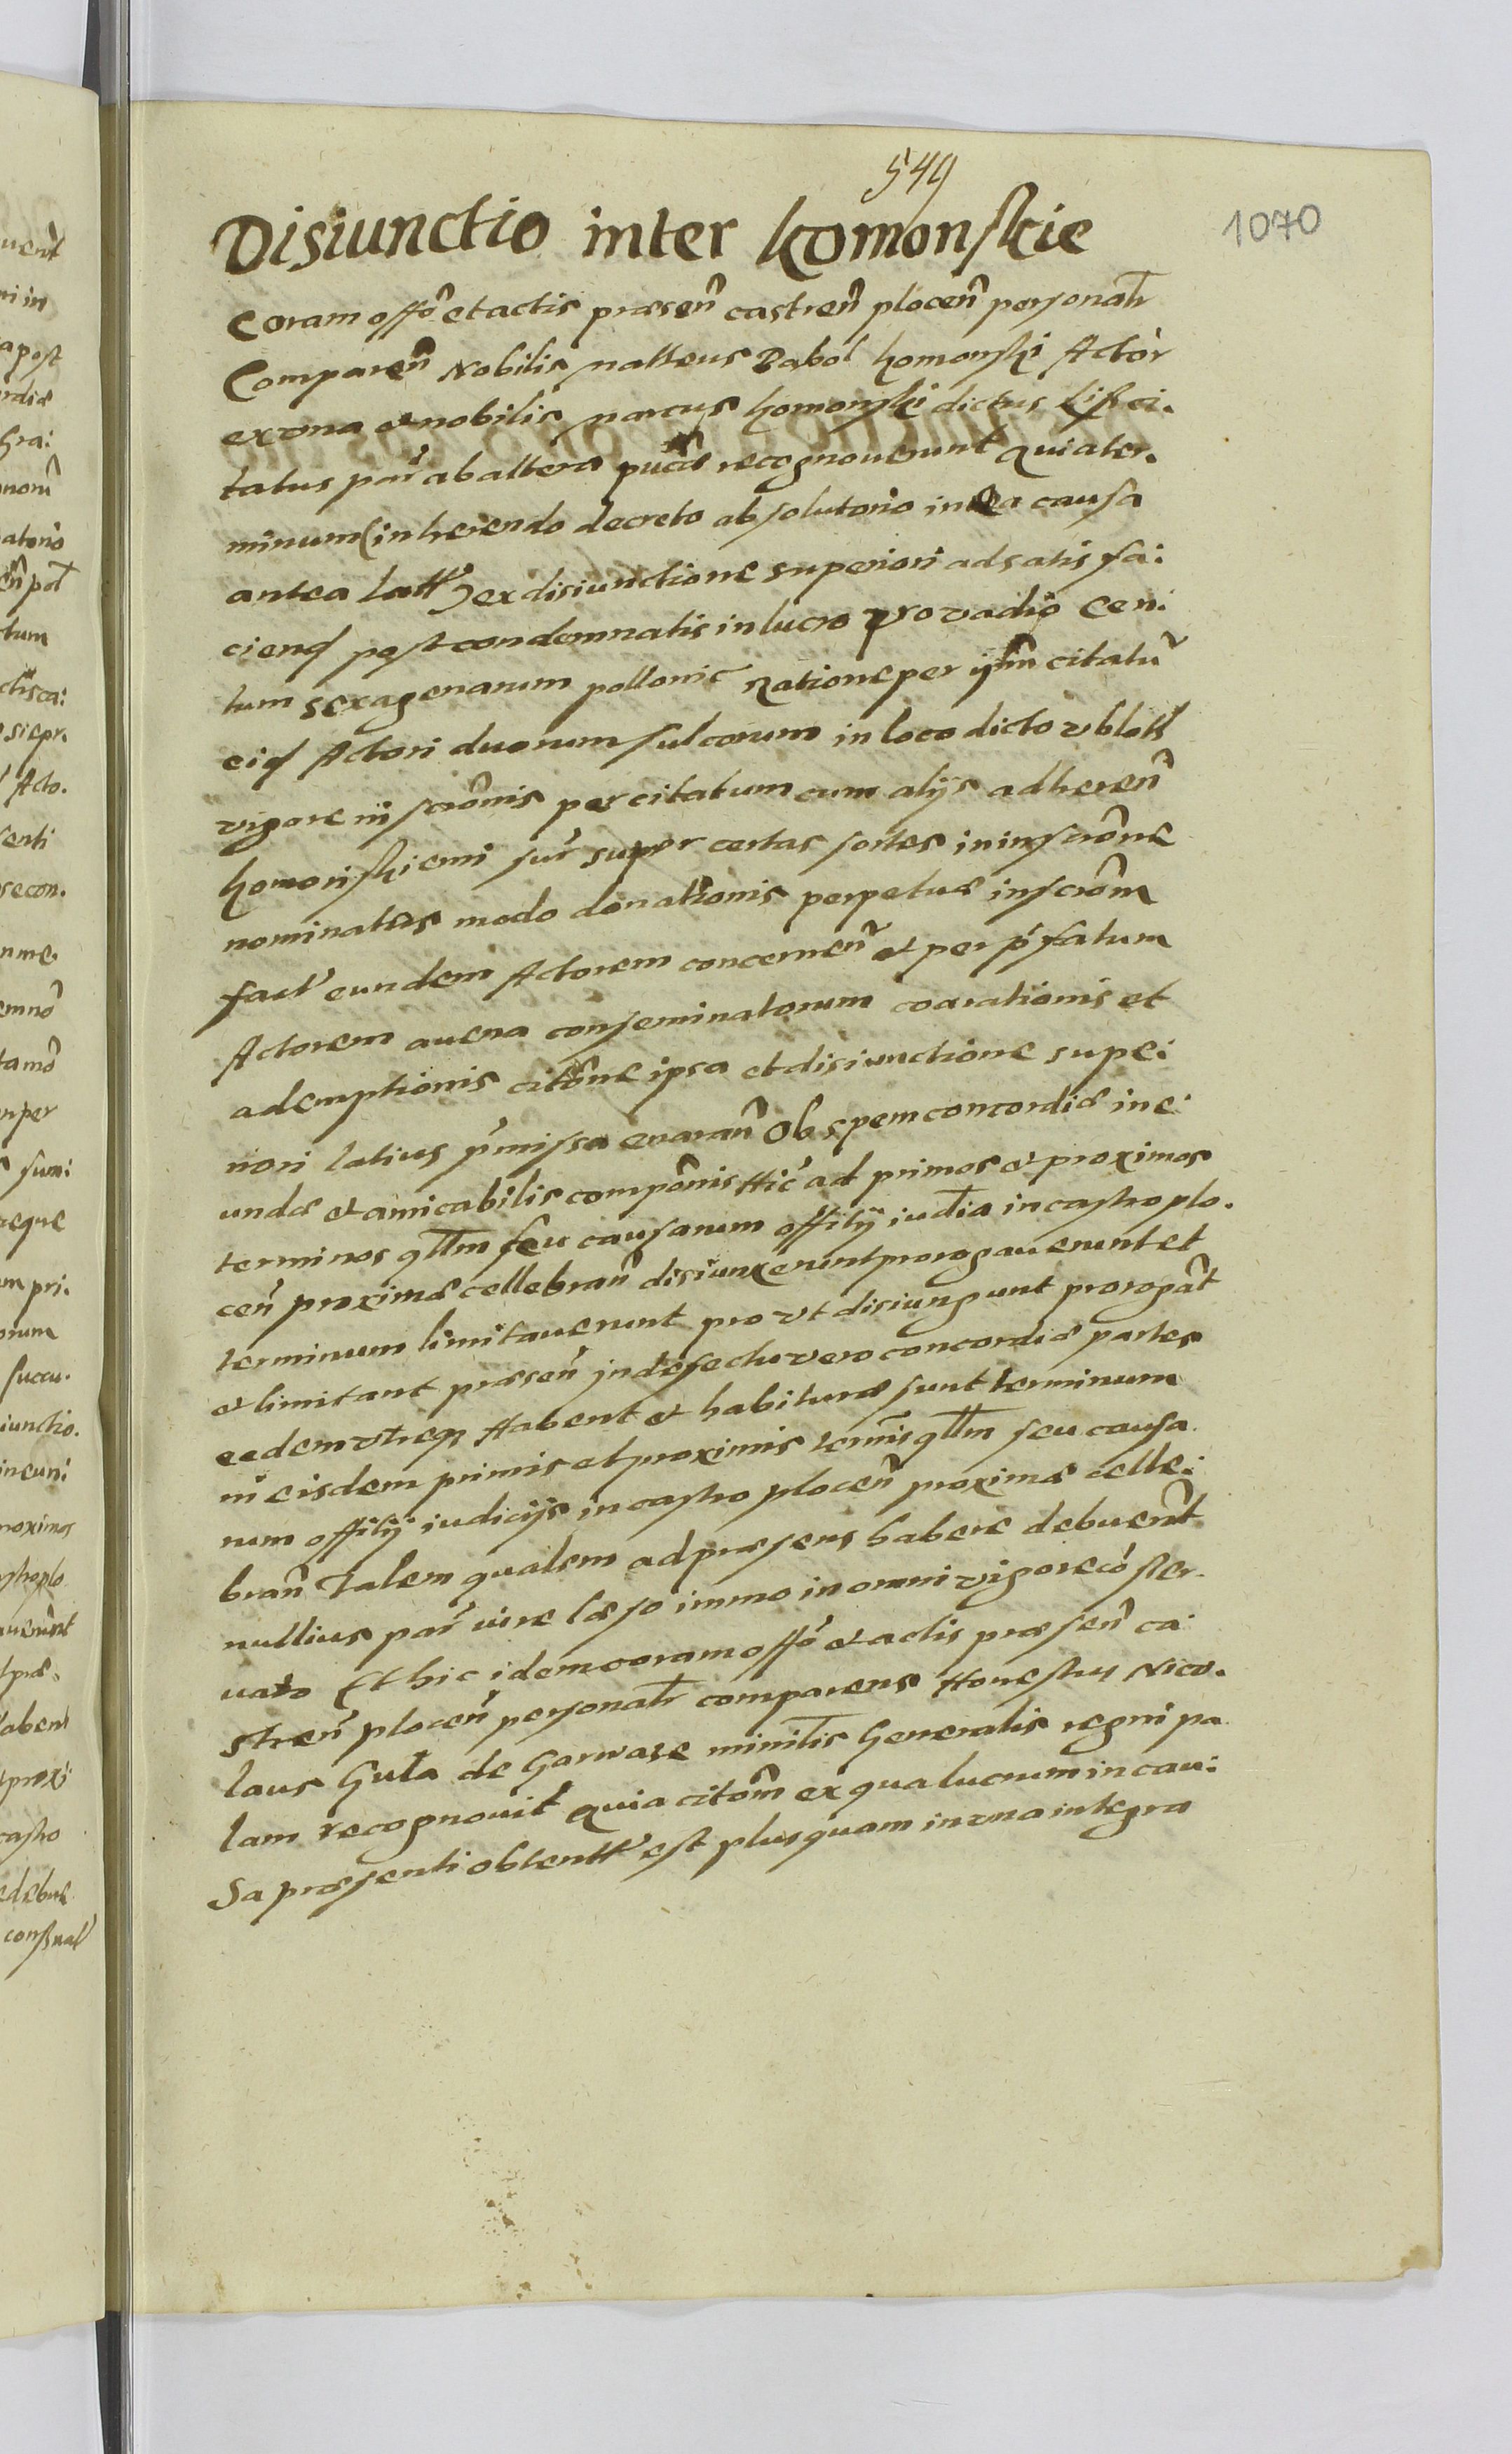 549
1070
Disiunctio inter komonskie
Coram offo et actis præsen castren plocen personalr
Comparen Nobilis Matteus Babol komonski Actor
ex vna et nobilis Marcus komonski dictus Lis ci.
tatus par ab altera pucæ recognouerunt Quia ter.
minum (inherendo decreto absolutorio in ea causa
antea latt) ex disiunctione superiori ad satis fa:
ciend post condemnatis in lucro pro vadio Cen:
tum sexagenarum pollonic Ratione per ipm citatu
eid Actori duorum sulcorum in loco dicto vblott
vigore inscronis per citatum cum alijs adheren
komonskiemi sur super certas sortes in inscrone
nominattas modo donationis perpetuæ inscrom
fact eundem Actorem concernen et per præfatum
Actorem auena conseminatorum coarationis et
ademptionis citone ipsa et disiunctione supe:
riori latius pmissa enaran Ob spem concordiæ ine:
undæ et amicabilis componis Hic ad primos et proximos
terminos qllm seu causarum offilij iudtia in castro plo.
cen proximæ cellebran disiunxerunt prorogauerunt et
terminum limitauerunt pro vt disiungunt prorogat
et limitant præsen jn defectu vero concordiæ partes
eedem vtreq Habent et habituræ sunt terminum
in eisdem primis et proximis termis qllm seu causa.
rum offilij iudicijs in castro plocen proximæ celle:
bran Talem qualem ad præsens habere debuert
nullius par iure læso immo in omni vigore coser.
uato Et hic idem coram offo et actis præsen ca
stren plocen personalr comparens Honestus Nico.
laus Guta de Garwaze minilis Generalis regni pa
lam recognouit Quia citom ex qua lucrum in cau:
sa præsenti obtentt est plusquam in vna integra